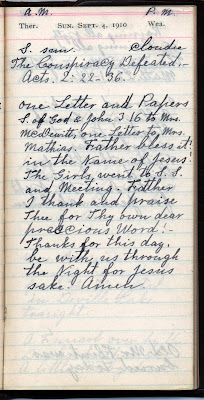 A. M. P. M.
Ther. SUN. SEPT. 4, 1910 Wea.
S. sam. Cloudia
The Conspiracy Defeated,-
Acts. 2: 22-36.
One Letter and Papers
S. of God & John 3 16 to Mrs.
McDevitt, one Letter to Mrs.
Mathias. Father bless it!
in the Name of Jesus!
The Girls, went to S. S.
and Meeting. Father
I thank and praise
Thee for Thy own dear
preccious Word!-
Thanks for this day,
be with us through
the Night for Jesus
sake. Amen.